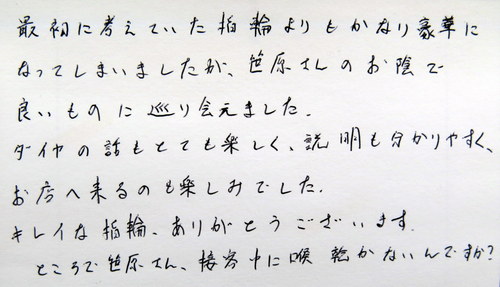 最初に考えていた指輪よりもかなり豪華に
なってしまいましたが、笹原さんのお陰で
良いものに巡り会えました.
ダイヤの話もとても楽しく、説明も分かりやすく、
お店へ来るのも楽しみでした.
キレイな指輪、ありがとうございます.
ところで笹原さん、接客中に喉乾かないんですか?